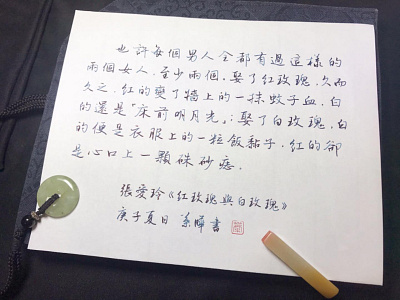 也許每個男人全都有過這樣的
兩個女人，至少兩個，娶了紅玫瑰，久而
久之，紅的變了牆上的一抹蚊子血，白
的還是「床前明月光」；娶了白玫瑰，白
的便是衣服上的一粒飯黏子，紅的卻
是心口上一顆硃砂痣。
張愛玲《紅玫瑰與白玫瑰》
庚子夏日 書